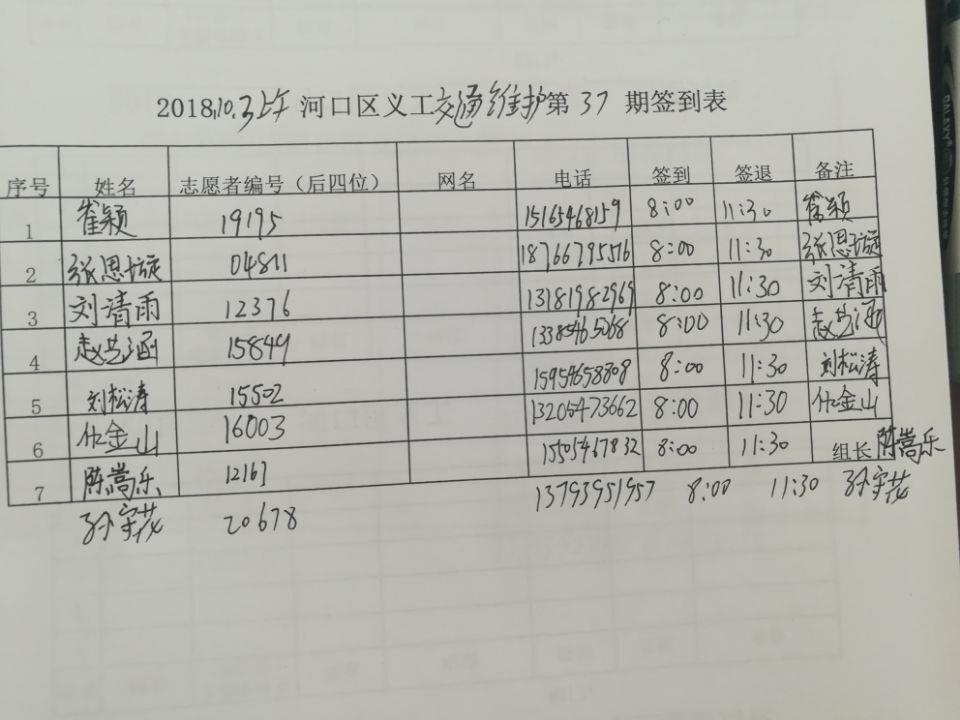 2018.10.3上午 河口区义工交通维护第 37 期签到表
序号 姓名 志愿者编号（后四位） 网名 电话 签到 签退 备注
1 崔颖 19195 15165468159 8:00 11:30 崔颖
2 张恩旋 04811 18766795516 8:00 11:30 张恩旋
3 刘清雨 12376 13181982969 8:00 11:30 刘清雨
4 赵艺涵 15849 13385465068 8:00 11:30 赵艺涵
5 刘松涛 15502 15954658808 8:00 11:30 刘松涛
6 仇金山 16003 13205473662 8:00 11:30 仇金山
7 陈嵩乐 12167 15505467832 8:00 11:30 组长 陈嵩乐
20678 13793951957 8:00 11:30